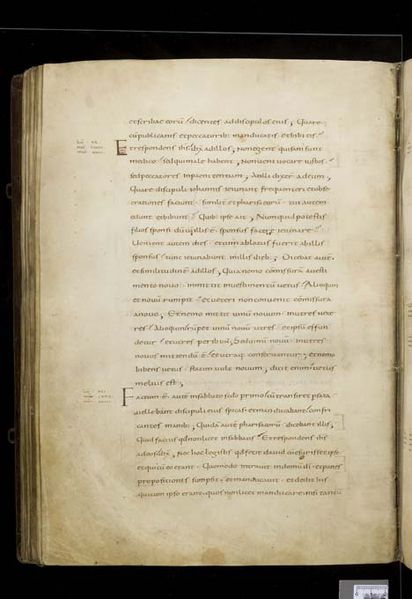 et scribae eorū dicentes ad discipulos eius, Quare
cū publicanis et peccatorib: manducatis et bibitis
Et respondens ihs dix ad illos, Non egent qui sani sunt
medico sed qui male habent, Non veni vocare iustos
sed peccatores in paenitentiam, At illi dixer ad eum,
Quare discipuli iohannis ieiunant frequenter et obse
crationes faciunt similit et pharisaeorū tui autem
edunt et bibunt Quib: ipse ait, Numquid potestis
filios sponsi dū cū illis ē sponsus facere ieiunare
Venient autem dies et cum ablatus fuerit ab illis
sponsus tunc ieiunabunt in illis dieb:, Dicebat aut
et similitudinē ad illos, Quia nemo commissurā a vesti
mento novo inmittit in vestimentum vetus Alioquin
et novū rumpit et veteri non convenit commissura
a novo, Et nemo mittit vinū novum in utres vete
res Alioquin rūpet vinū novū utres et ipsū effun
detur et utres peribunt, Sed vinū novū in utres
novos mittendū ē et utraq: conservantur, et nemo
bibens vetus statim vult novum, dicit enim vetus
melius est,
Factum ē aut in sabbato secundo primo cū transiret p sata
vellebant discipuli eius spicas et manducabant confri
cantes manib:, Quidā aut pharisaeorū dicebant illis,
Quid facitis qd non licet in sabbatis Et respondens ihs
ad eos dix, Nec hoc legistis qd fecit david cū esurisset ipse
et qui cū eo erant Quomodo intravit in domū di et panes
propositionis sumpsit et manducavit et dedit his
qui cum ipso erant quos non licet manducare nisi tantū